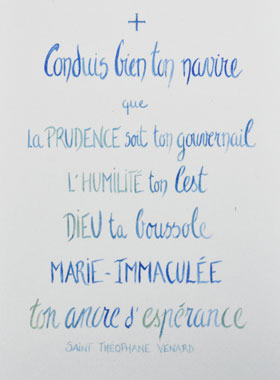 Conduis bien ton navire
que
La PRUDENCE soit ton gouvernail
L'HUMILITÉ ton lest
DIEU ta boussole
MARIE-IMMACULÉE
ton ancre d'espérance
SAINT THÉOPHANE VENARD